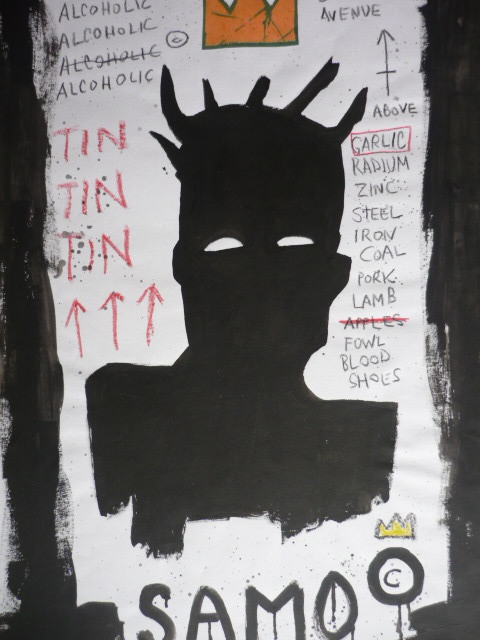 ALCOHOLIC
ALCOHOLIC
ALCOHOLIC ©
ALCOHOLIC
TIN
TIN
TIN
AVENUE
ABOVE
GARLIC
RADIUM
ZINC
STEEL
IRON
COAL
PORK
LAMB
APPLES
FOWL
BLOOD
SHOES
SAMO ©